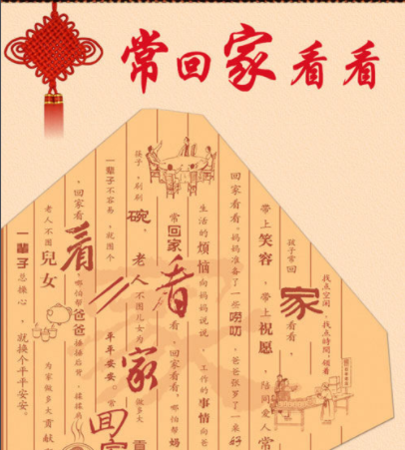 常回家看看
找点空闲，找点时间，领着
孩子常回家看看，
带上笑容，带上祝愿，陪同爱人常
回家看看，妈妈准备了一些唠叨，爸爸张罗了
生活的烦恼向妈妈说说，工作的事情向爸
常回家看看，回家看看，哪怕帮妈
孩子，刷刷碗，老人不图儿女为家做多大贡
一辈子不容易，就图个
回家看看，哪怕帮爸爸捶捶后背，揉揉肩
老人不图兒女为家做多大贡献
一輩子总操心，就换个平平安安。
看看家回家